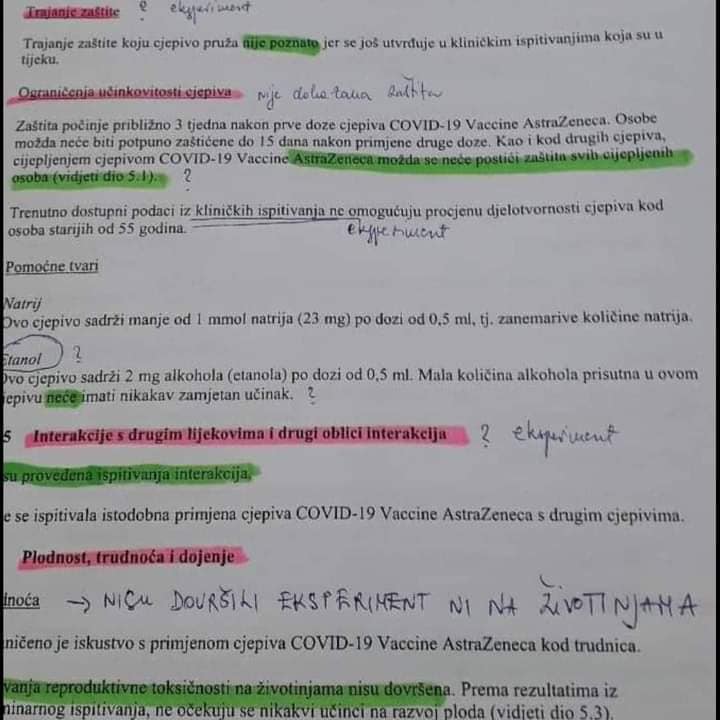 Trajanje zaštite ? eksperiment
Trajanje zaštite koju cjepivo pruža nije poznato jer se još utvrđuje u kliničkim ispitivanjima koja su u
tijeku.
Ograničenja učinkovitosti cjepiva nije dokazana zaštita
Zaštita počinje približno 3 tjedna nakon prve doze cjepiva COVID-19 Vaccine AstraZeneca. Osobe
možda neće biti potpuno zaštićene do 15 dana nakon primjene druge doze. Kao i kod drugih cjepiva,
cijepljenjem cjepivom COVID-19 Vaccine AstraZeneca možda se neće postići zaštita svih cijepljenih
osoba (vidjeti dio 5.1). ?
Trenutno dostupni podaci iz kliničkih ispitivanja ne omogućuju procjenu djelotvornosti cjepiva kod
osoba starijih od 55 godina. eksperiment
Pomoćne tvari
Natrij
Ovo cjepivo sadrži manje od 1 mmol natrija (23 mg) po dozi od 0,5 ml, tj. zanemarive količine natrija.
Etanol ?
Ovo cjepivo sadrži 2 mg alkohola (etanola) po dozi od 0,5 ml. Mala količina alkohola prisutna u ovom
jepivu neće imati nikakav zamjetan učinak. ?
5 Interakcije s drugim lijekovima i drugi oblici interakcija ? eksperiment
su provedena ispitivanja interakcija.
e se ispitivala istodobna primjena cjepiva COVID-19 Vaccine AstraZeneca s drugim cjepivima.
Plodnost, trudnoća i dojenje
noća → NISU DOVRŠILI EKSPERIMENT NI NA ŽIVOTINJAMA
ničeno je iskustvo s primjenom cjepiva COVID-19 Vaccine AstraZeneca kod trudnica.
vanja reproduktivne toksičnosti na životinjama nisu dovršena. Prema rezultatima iz
minarnog ispitivanja, ne očekuju se nikakvi učinci na razvoj ploda (vidjeti dio 5.3).